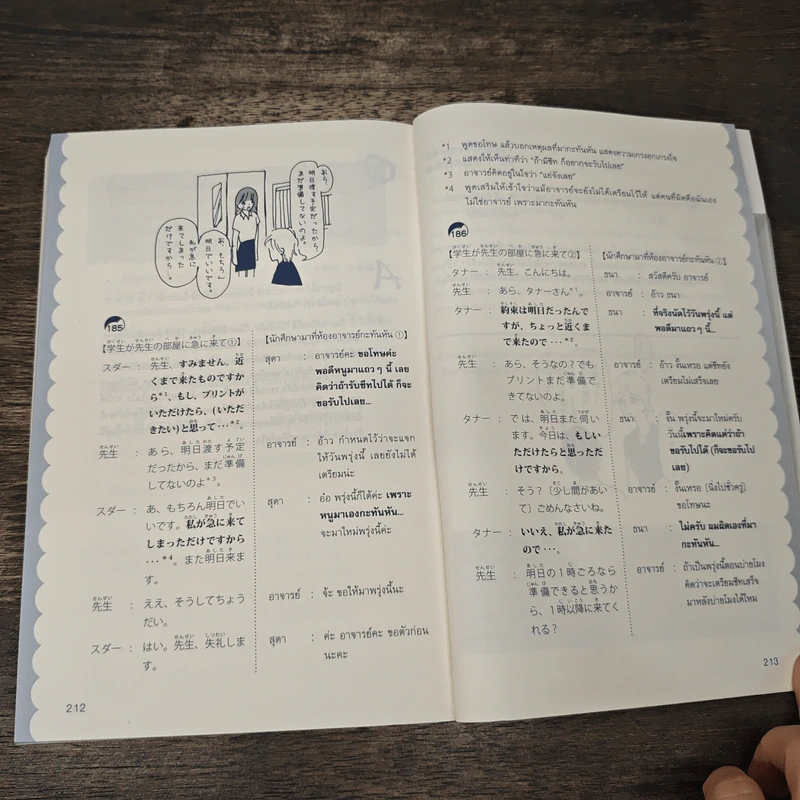 あら、
明日渡す予定だったから
まだ準備してないのよ。
あ、もちろん
明日でいいです。
私が急に
来てしまった
だけですから。
185
【学生が先生の部屋に急に来て①】
スダー： 先生、すみません。近
くまで来たものですか
ら*1、もし、プリントが
いただけたら、(いただ
きたい)と思って…*2。
先生 ： あら、明日渡す予定
だったから、まだ準備
してないのよ*3。
スダー： あ、もちろん明日でい
いです。私が急に来て
しまっただけですから
…*4。また明日来ま
す。
先生 ： ええ、そうしてちょう
だい。
スダー： はい。先生、失礼しま
す。
【นักศึกษามาที่ห้องอาจารย์กะทันหัน ①】
สุดา : อาจารย์คะ ขอโทษค่ะ
พอดีหนูมาแถว ๆ นี้ เลย
คิดว่าถ้ารับชีทไปได้ ก็จะ
ขอรับไปเลย...
อาจารย์ : อ้าว กำหนดไว้ว่าจะแจก
ให้วันพรุ่งนี้ เลยยังไม่ได้
เตรียมน่ะ
สุดา : อ๋อ พรุ่งนี้ก็ได้ค่ะ เพราะ
หนูมาเองกะทันหัน...
จะมาใหม่พรุ่งนี้ค่ะ
อาจารย์ : จ้ะ ขอให้มาพรุ่งนี้นะ
สุดา : ค่ะ อาจารย์คะ ขอตัวก่อน
นะคะ
212
*1 พูดขอโทษ แล้วบอกเหตุผลที่มากะทันหัน แสดงความเกรงอกเกรงใจ
*2 แสดงให้เห็นท่าทีว่า "ถ้ามีชีท ก็อยากจะรับไปเลย"
*3 อาจารย์คิดอยู่ในใจว่า "แย่จังเลย"
*4 พูดเสริมให้เข้าใจว่าแม้อาจารย์จะยังไม่ได้เตรียมไว้ให้ แต่คนที่ผิดคือฉันเอง
ไม่ใช่อาจารย์ เพราะมากะทันหัน
186
【学生が先生の部屋に急に来て②】
タナー ： 先生、こんにちは。
先生 ： あら、タナーさん*1。
タナー ： 約束は明日だったんで
すが、ちょっと近くま
で来たので…*2。
先生 ： あら、そうなの？でも
プリントまだ準備で
きてないのよ。
タナー ： では、明日また伺い
ます。今日は、もしい
ただけたらと思っただ
けですから。
先生 ： そう？〔少し間があい
て〕ごめんなさいね。
タナー ： いいえ、私が急に来た
ので…。
先生 ： 明日の１時ごろなら
準備できると思うか
ら、１時以降に来てく
れる？
【นักศึกษามาที่ห้องอาจารย์กะทันหัน ②】
ธนา : สวัสดีครับ อาจารย์
อาจารย์ : อ้าว ธนา
ธนา : ที่จริงนัดไว้วันพรุ่งนี้ แต่
พอดีมาแถว ๆ นี้...
อาจารย์ : อ้าว งั้นเหรอ แต่ชีทยัง
เตรียมไม่เสร็จเลย
ธนา : งั้น พรุ่งนี้จะมาใหม่ครับ
วันนี้เพราะคิดแค่ว่าถ้า
ขอรับไปได้ (ก็จะขอรับไป
เลย)
อาจารย์ : งั้นเหรอ (นิ่งไปชั่วครู่)
ขอโทษนะ
ธนา : ไม่ครับ ผมผิดเองที่มา
กะทันหัน...
อาจารย์ : ถ้าเป็นพรุ่งนี้ตอนบ่ายโมง
คิดว่าจะเตรียมชีทเสร็จ
มาหลังบ่ายโมงได้ไหม
213